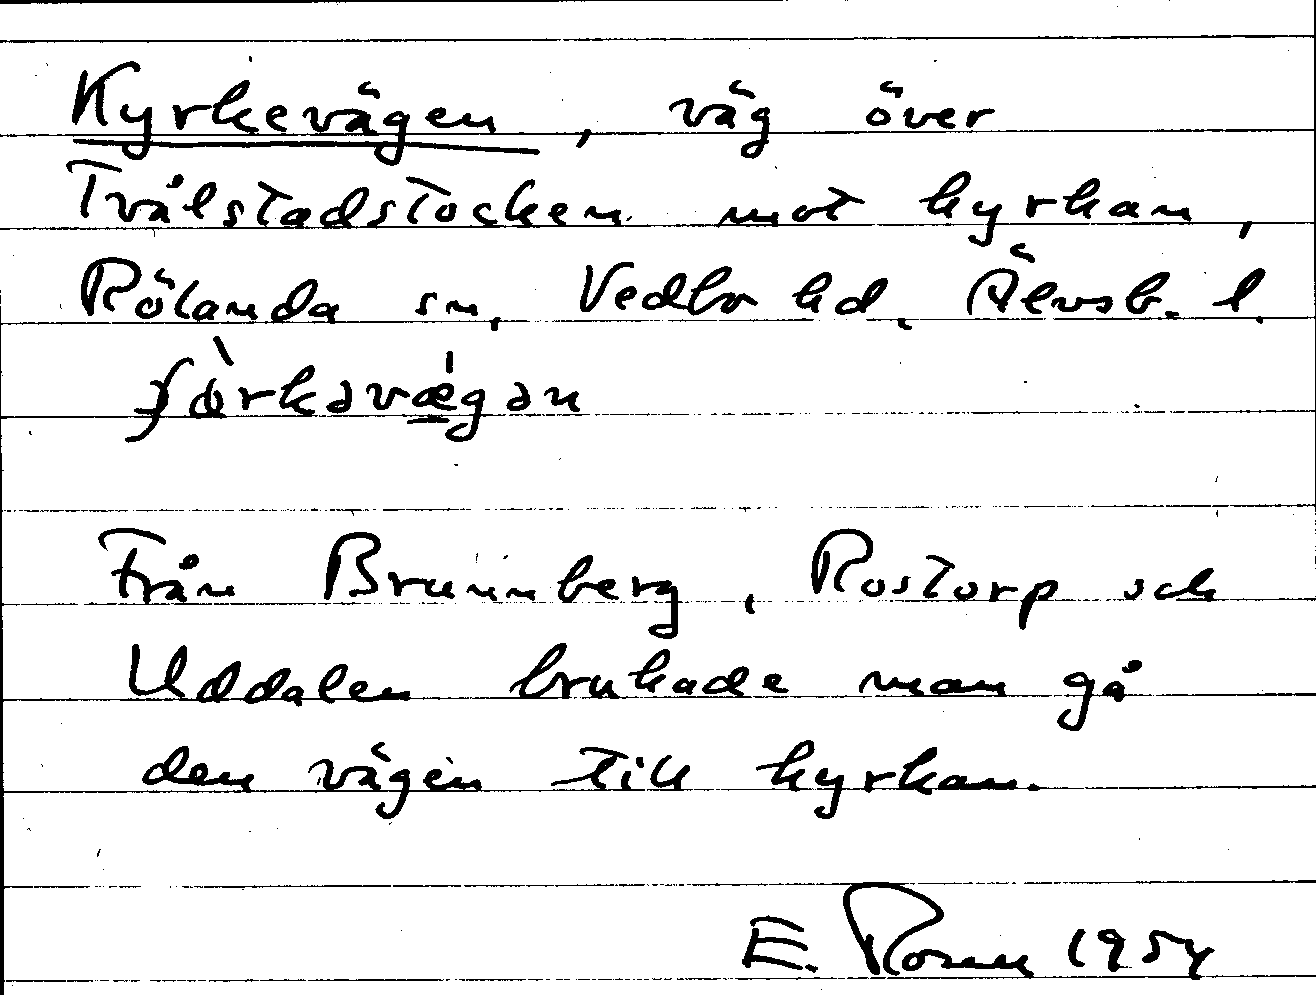 Kyrkevägen, väg över
Tvålstadstocken mot kyrkan,
Rölanda sn, Vedbo hd, Älvsb. l.
Från Brunnberg, Rostorp och
Uddalen brukade man gå
den vägen till kyrkan.
E. Rosen 1954